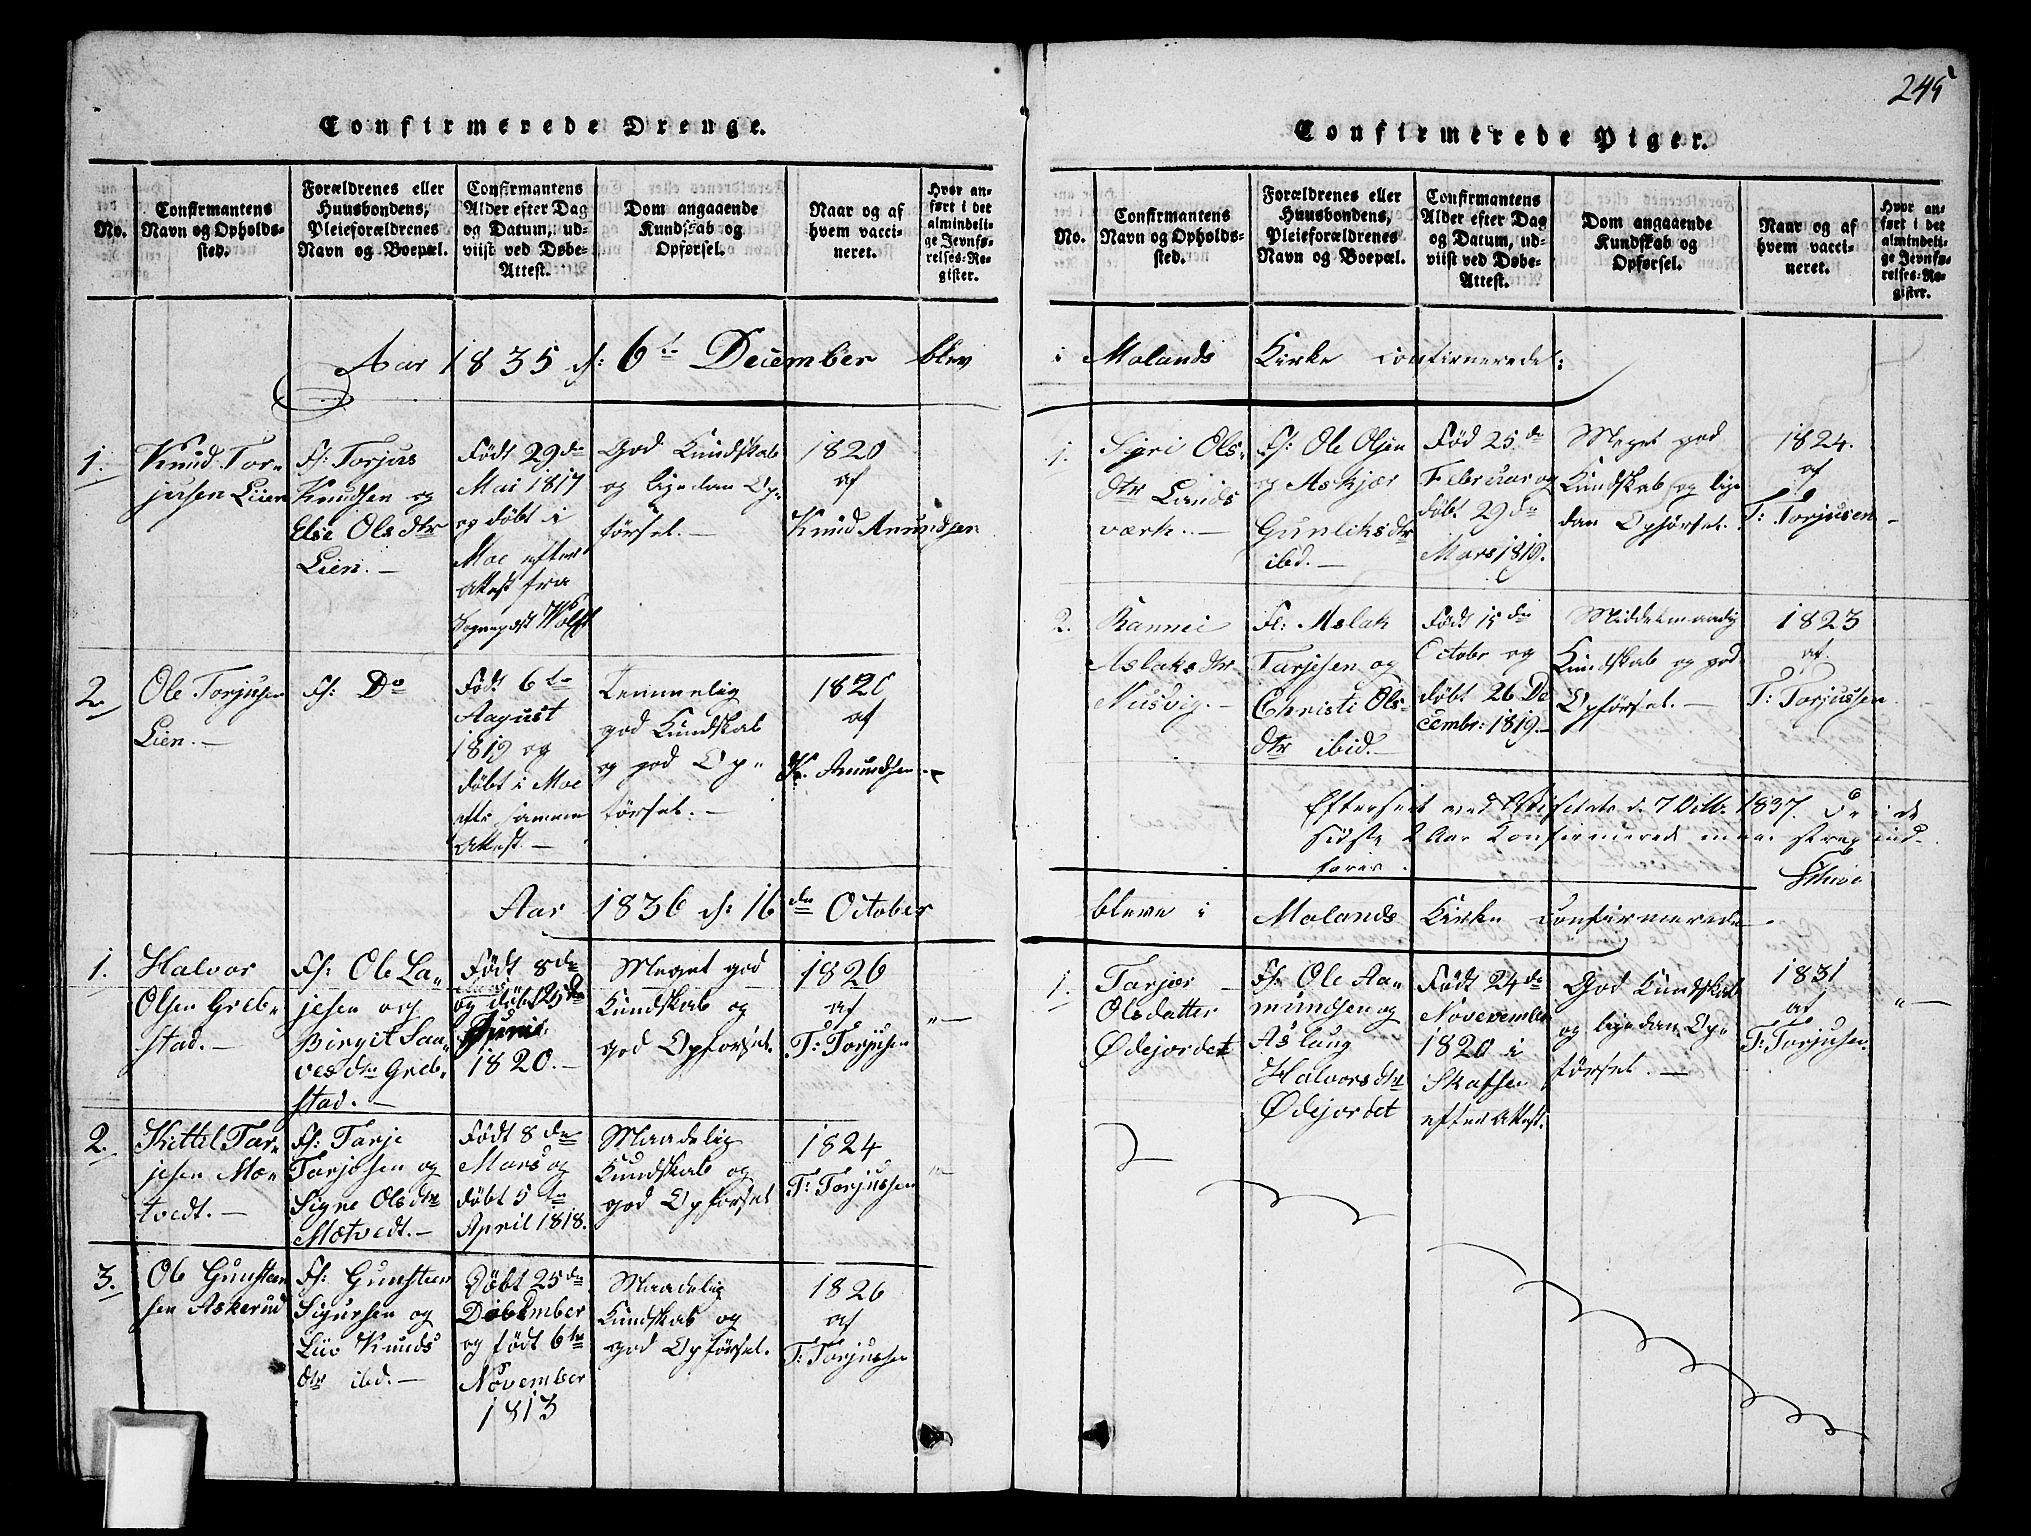 245
Confirmerede Drenge.
No.
Confirmantens
Navn og Opholds-
sted.
Forældrenes eller
Huusbondens,
Pleieforældrenes
Navn og Boepæl.
Confirmantens
Alder efter Dag
og Datum, ud-
viist ved Døbe-
Attest.
Dom angaaende
Kundskab og
Opførsel.
Naar og af
hvem vacci-
neret.
Hvor an-
ført i det
almindeli-
ge Jevnfø-
relses-Re-
gister.
Aar 1835 d: 6te December blev
1.
Knud Tor-
jusen Liien
F: Torjus
Knudsen og
Else Olsdtr
Lien.-
Født 29de
Mai 1817
og døbt i
Moe efter
Attest fra
Sognepræst Wolff
God Kundskab
og ligedan Op-
førsel.-
1820
af
Knud Anundsen
2.
Ole Torjusen
Lien.-
F: Do
Født 6te
August
1819 og
døbt i Moe
samme
Attest.-
Temmelig
god Kundskab
og god Op-
førsel.-
1820
af
K. Anundsen.-
Aar 1836 d: 16de October
1.
Halvor
Olsen Greb-
stad.-
F: Ole La-
jesen og
Birgit Sau-
vesdtr Greb-
stad.-
Født 8de
og døbt 25de
Junii
1820.-
Meget god
Kundskab og
god Opførsel.
1826
af
T: Torjusen
"-
2.
Kittil Tar-
jesen Mæ-
tvedt.-
F: Tarje
Tarjesen og
Signe Olsdtr
Mætvedt.-
Født 8de
Mars og
døbt 5te
April 1818.
Maadelig
Kundskab og
god Opførsel
1824
T: Torjussen
"-
3.
Ole Gunsteen
sen Askerud
F: Gunsteen
Sigursen og
Liv Knuds
dtr ibd.-
Døbt 25de
December
og født 6te
November
1813
Maadelig
Kundskab og
god Opførsel.
1826
af
T: Torjussen
Confirmerede Piger.
No.
Confirmantens
Navn og Opholds-
sted.
Forældrenes eller
Huusbondens,
Pleieforældrenes
Navn og Boepæl.
Confirmantens
Alder efter Dag
og Datum, ud-
viist ved Døbe-
Attest.
Dom angaaende
Kundskab og
Opførsel.
Naar og af
hvem vacci-
neret.
Hvor an-
ført i det
almindeli-
ge Jevnfø-
relses-Re-
gister.
i Molands Kirke confirmerede:
1.
Siri Ols-
dtr Lands
værk.-
F: Ole Olsen
og Askjær
Gunliksdtr
ibd.-
Fød 25de
Februar og
døbt 29de
Mars 1819.
Meget god
Kundskab og lige
dan Opførsel.
1824.
af
T: Torjusen-
2.
Rannei
Aslaksdtr
Nusvig.-
F: Aslak
Tarjesen og
Christi Ols-
dtr ibid.-
Født 15de
Octobr og
døbt 26 De
cembr: 1819.-
Middelmaadig
Kundskab og god
Opførsel.-
1823
af.
T: Torjussen.
Efterseet ved Visitats d. 7 1837. De i de
sidste 2 Aar Konfirmerede maa strax ind-
føres.
bleve i Molands Kirke Confirmerede.
1.
Tarjer
Olsdatter
Ødejordet
F: Ole Aa-
mundsen og
Aslaug
Halvorsdtr
Ødejordet
Født 24de
November
1820 i
Skafsen
efter Attest.
God Kundskab
og ligedan Op-
førsel.-
1831
af
T: Torjusen.
"-